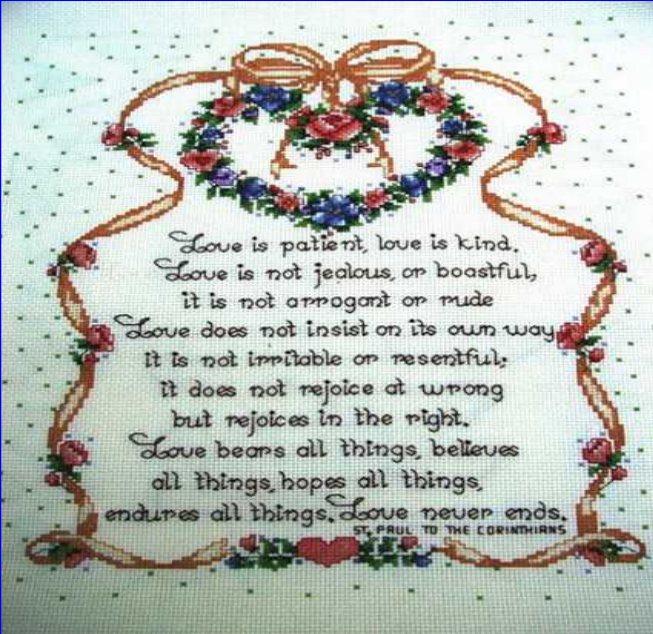 Love is patient, love is kind.
Love is not jealous, or boastful,
it is not arrogant or rude
Love does not insist on its own way
it is not irritable or resentful;
it does not rejoice at wrong
but rejoices in the right.
Love bears all things, believes
all things, hopes all things,
endures all things. Love never ends.
ST. PAUL TO THE CORINTHIANS